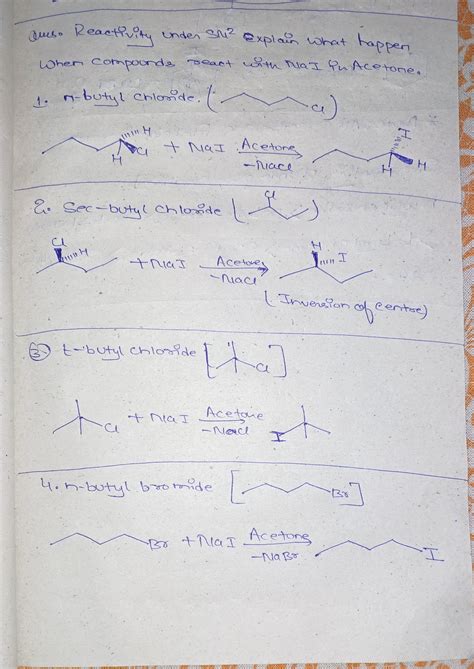 Ques. Reactivity under SN² explain what happen
when compounds react with NaI in Acetone.
1. n-butyl chloride. ( Cl )
H Cl H + NaI Acetone -NaCl I H H
2. Sec-butyl chloride ( Cl )
Cl H + NaI Acetone -NaCl H I
( Inversion of centre)
3. t-butyl chloride [ Cl ]
Cl + NaI Acetone -NaCl I
4. n-butyl bromide [ Br ]
Br + NaI Acetone -NaBr I